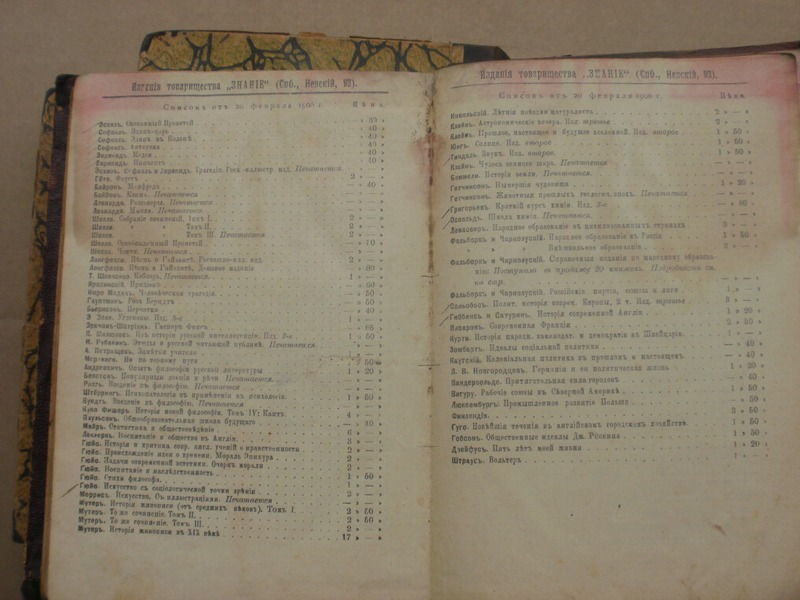 Изданія товарищества „ЗНАНІЕ“ (Спб., Невскій, 92).
Списокъ отъ 20 февраля г. Цѣна.
Эсхилъ. Скованный Прометей 35
Софоклъ. Эдипъ-царь 40
Софоклъ. Эдипъ въ Колонѣ 40
Софоклъ. Антигона 40
Еврипидъ. Медея 40
Еврипидъ. Ипполитъ 40
Эсхилъ, Софоклъ и Еврипидъ. Трагедіи. Роск.-иллюстр. изд. Печатается
Гёте. Фаустъ 2
Байронъ. Манфредъ 40
Байронъ. Каинъ. Печатается
Леопарди. Разговоры. Печатается
Леопарди. Мысли. Печатается
Шелли. Собраніе сочиненій. Томъ I. 2
Шелли. Томъ II. 2
Шелли. Томъ III. Печатается 2
Шелли. Освобожденный Прометей 70
Шелли. Ченчи. Печатается
Лонгфелло. Пѣснь о Гайаватѣ. Роскошно-илл. изд. 2
Лонгфелло. Пѣснь о Гайаватѣ. Дешевое изданіе 80
Т. Шевченко. Кобзарь. Печатается 1
Гауптманъ. Роза Берндтъ 50
Бьернсонъ. Перчатка 40
Э. Золя. Углекопы. Изд. 1
Эркманъ-Шатріанъ. Гаспаръ Фиксъ 65
Н. Рубакинъ. Этюды о русской читающей публикѣ. Печатается
А. Петрищевъ. Замѣтки учителя
Андреевичъ. Опытъ философіи русской литературы 1 20
Бельтовъ. Популярныя лекціи и рѣчи. Печатается
Риль. Введеніе въ философію. Печатается
Штёррингъ. Психопатологія въ примѣненіи къ психологіи 1 50
Вундтъ. Введеніе въ философію. Печатается
Куно Фишеръ. Исторія новой философіи. Томъ IV: Кантъ. 4
Паульсенъ. Общеобразовательная школа будущаго 40
Майръ. Статистика и обществовѣдѣніе 6
Леклеркъ. Воспитаніе и общество въ Англіи 3
Гюйо. Исторія и критика совр. англ. ученій о нравственности 2
Гюйо. Происхожденіе идеи о времени. Мораль Эпикура 2
Гюйо. Задачи современной эстетики. Очеркъ морали 2
Гюйо. Воспитаніе и наслѣдственность
Гюйо. Стихи философа 1 50
Гюйо. Искусство съ соціологической точки зрѣнія
Моррисъ. Искусство. Съ иллюстраціями. Печатается
Мутеръ. Исторія живописи (отъ среднихъ вѣковъ). Томъ I. 2 50
Мутеръ. То же сочиненіе. Томъ II. 2 50
Мутеръ. То же сочиненіе. Томъ III. 2
Мутеръ. Исторія живописи въ XIX вѣкѣ 17
Изданія товарищества „ЗНАНІЕ“ (Спб., Невскій, 92).
Списокъ отъ 20 февраля г. Цѣна.
Никольскій. Лѣтнія поѣздки натуралиста 2
Клейнъ. Астрономическіе вечера. Изд. третье 2
Клейнъ. Прошлое, настоящее и будущее вселенной. Изд. второе 1 50
Юнгъ. Солнце. Изд. второе 1 50
Тиндаль. Звукъ. Изд. второе 1 50
Клейнъ. Чудеса земного шара. Печатается
Беммели. Исторія земли. Печатается
Гетчинсонъ. Вымершія чудовища 1 20
Гетчинсонъ. Животныя прошлыхъ геологич. эпохъ. Печатается
Григорьевъ. Краткій курсъ химіи. Изд. 80
Оствальдъ. Школа химіи. Печатается
Левассеръ. Народное образованіе въ цивилизованныхъ странахъ 3
Фальборкъ и Чарнолускій. Народное образованіе въ Россіи 1 50
Внѣшкольное образованіе 2
Фальборкъ и Чарнолускій. Справочныя изданія по народному образова-
нію: Поступило въ продажу 20 книжекъ. Подробности см.
на стр.
Фальборкъ и Чарнолускій. Россійскія партіи, союзы и лиги 1
Сеньобосъ. Полит. исторія соврем. Европы, 2 т. Изд. третье 3
Гиббинсъ и Сатуринъ. Исторія современной Англіи 1 20
Исторія народн. законодат. и демократіи въ Швейцаріи
Зомбартъ. Идеалы соціальной политики 40
Каутскій. Колоніальная политика въ прошломъ и настоящемъ 40
Л. В. Новгородцевъ. Германія и ея политическая жизнь 1 20
Вандервельде. Притягательная сила городовъ 40
Вигуру. Рабочіе союзы въ Сѣверной Америкѣ 1 50
Люксембургъ. Промышленное развитіе Польши 50
Финляндія 3 50
Гуго. Новѣйшія теченія въ англійскомъ городскомъ хозяйствѣ. 1 50
Гобсонъ. Общественные идеалы Дж. Рёскина 1 50
Дрейфусъ. Пять лѣтъ моей жизни 1 20
Штраусъ. Вольтеръ 1